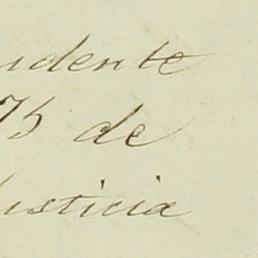 udente
75 de
Justicia